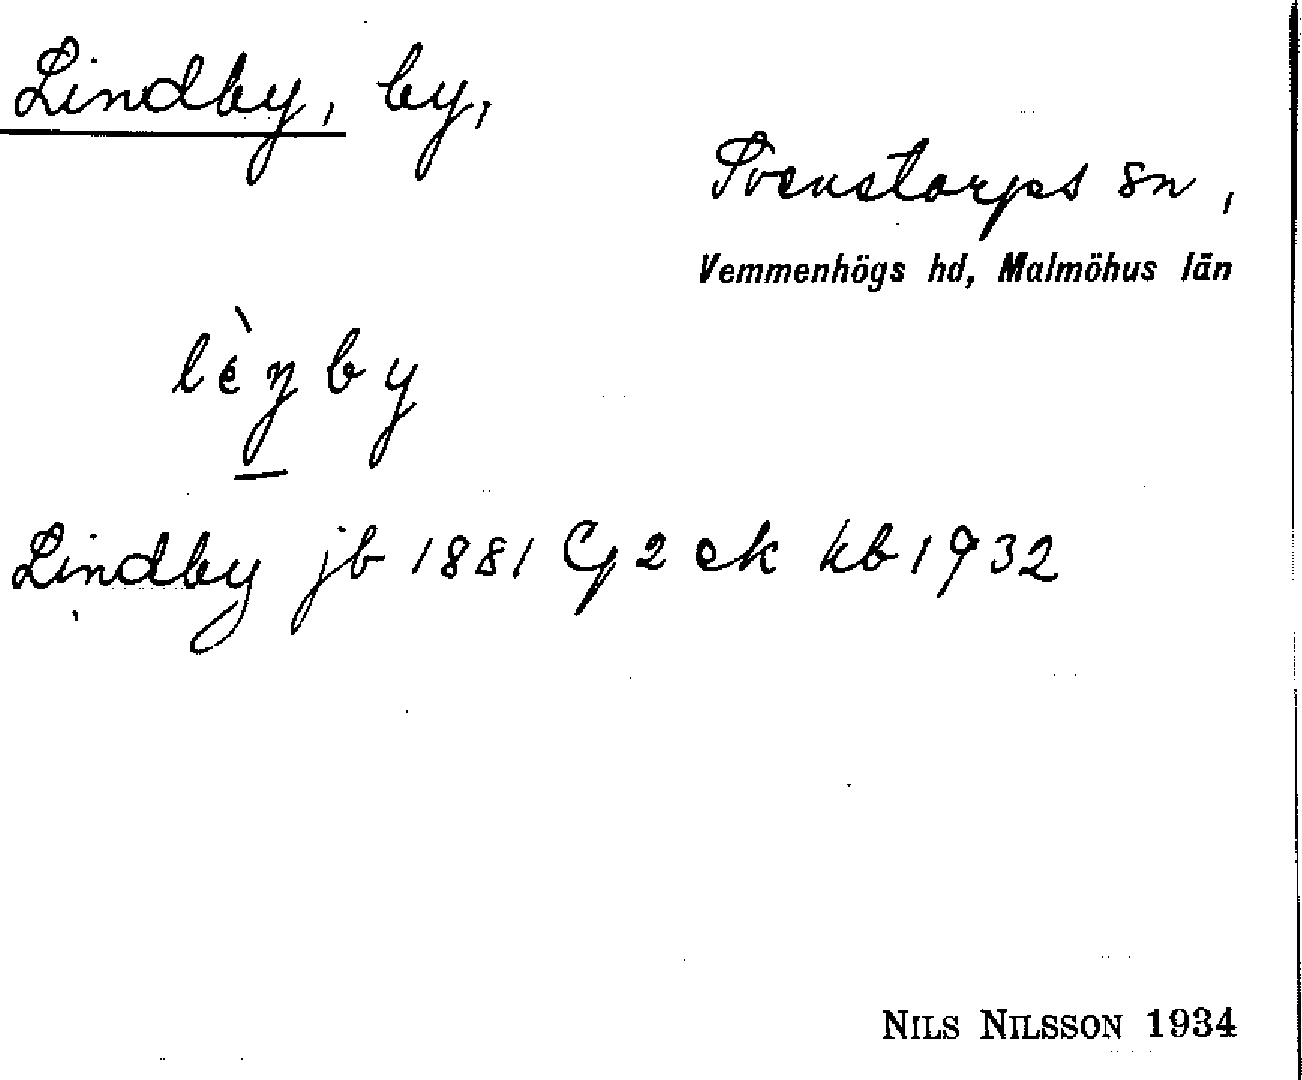 Lindby, by,
Svenstorps sn,
Vemmenhögs hd, Malmöhus län
lèŋby
Lindby jb 1881 Cg 2 ek kb 1932
NILS NILSSON 1934